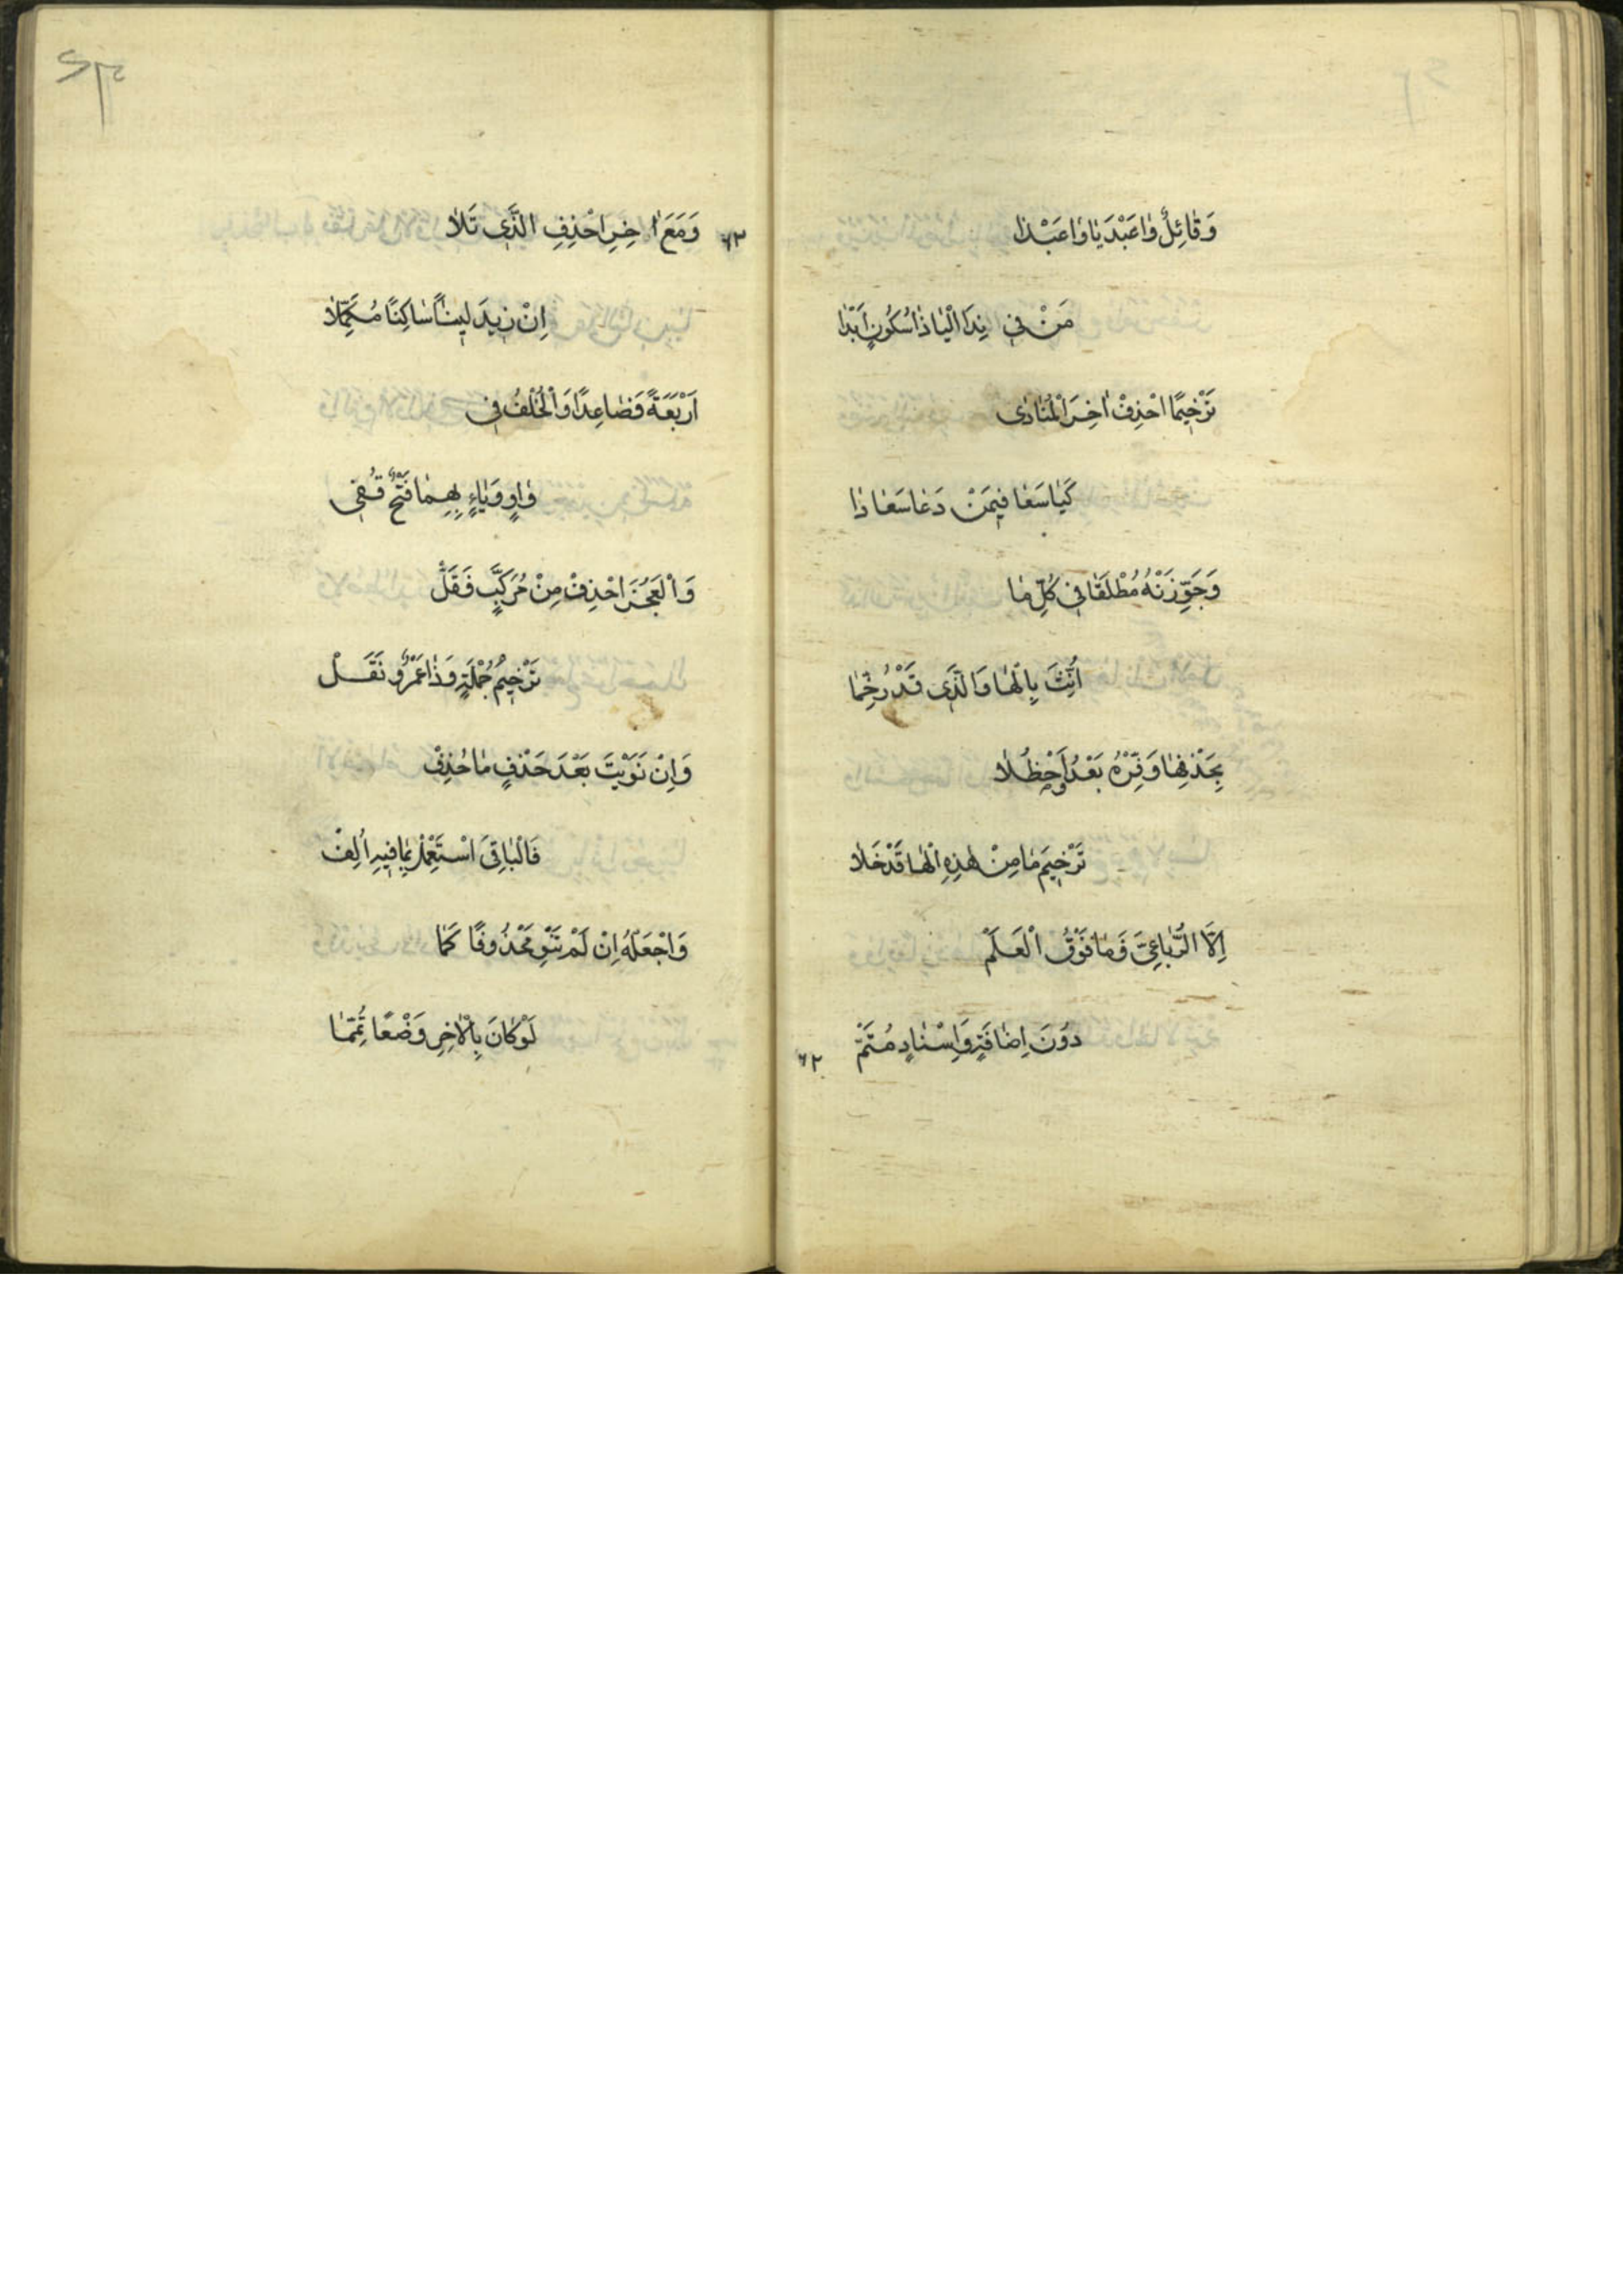 وَقَائِلٌ وَاعَبْدَيَا وَاعَبْدَا
مَنْ فِي نِدَا الْيَا ذَا سُكُونٍ اَبْدَا
تَرْخِيمًا احْذِفْ اٰخِرَ الْمُنَادٰى
كَيَا سَعَا فِيمَنْ دَعَا سَعَادَا
وَجَوِّزَنْهُ مُطْلَقًا فِي كُلِّ مَا
اُنِّثَ بِالْهَا وَالَّذِي قَدْ رُخِّمَا
بِحَذْفِهَا وَفِّرْهُ بَعْدُ وَاحْظُلَا
تَرْخِيمَ مَا مِنْ هٰذِهِ الْهَا قَدْ خَلَا
اِلَّا الرُّبَاعِيَّ فَمَا فَوْقُ الْعَلَمْ
دُونَ اِضَافَةٍ وَاِسْنَادٍ مُتَمّْ
٦٢
٦٣
وَمَعَ اٰخِرِ احْذِفِ الَّذِي تَلَا
اِنْ زِيدَ لِينًا سَاكِنًا مُكَمِّلَا
اَرْبَعَةً فَصَاعِدًا وَالْخُلْفُ فِي
وَاوٍ وَيَاءٍ بِهِمَا فَتْحٌ قُفِي
وَالْعَجُزَ احْذِفْ مِنْ مُرَكَّبٍ فَقَلّْ
تَرْخِيمُ جُمْلَةٍ وَذَا عَمْرٌو نَقَلْ
وَاِنْ نَوَيْتَ بَعْدَ حَذْفٍ مَا حُذِفْ
فَالْبَاقِيَ اسْتَعْمِلْ بِمَا فِيهِ اُلِفْ
وَاجْعَلْهُ اِنْ لَمْ تَنْوِ مَحْذُوفًا كَمَا
لَوْ كَانَ بِالْاٰخِرِ وَضْعًا تُمِّمَا